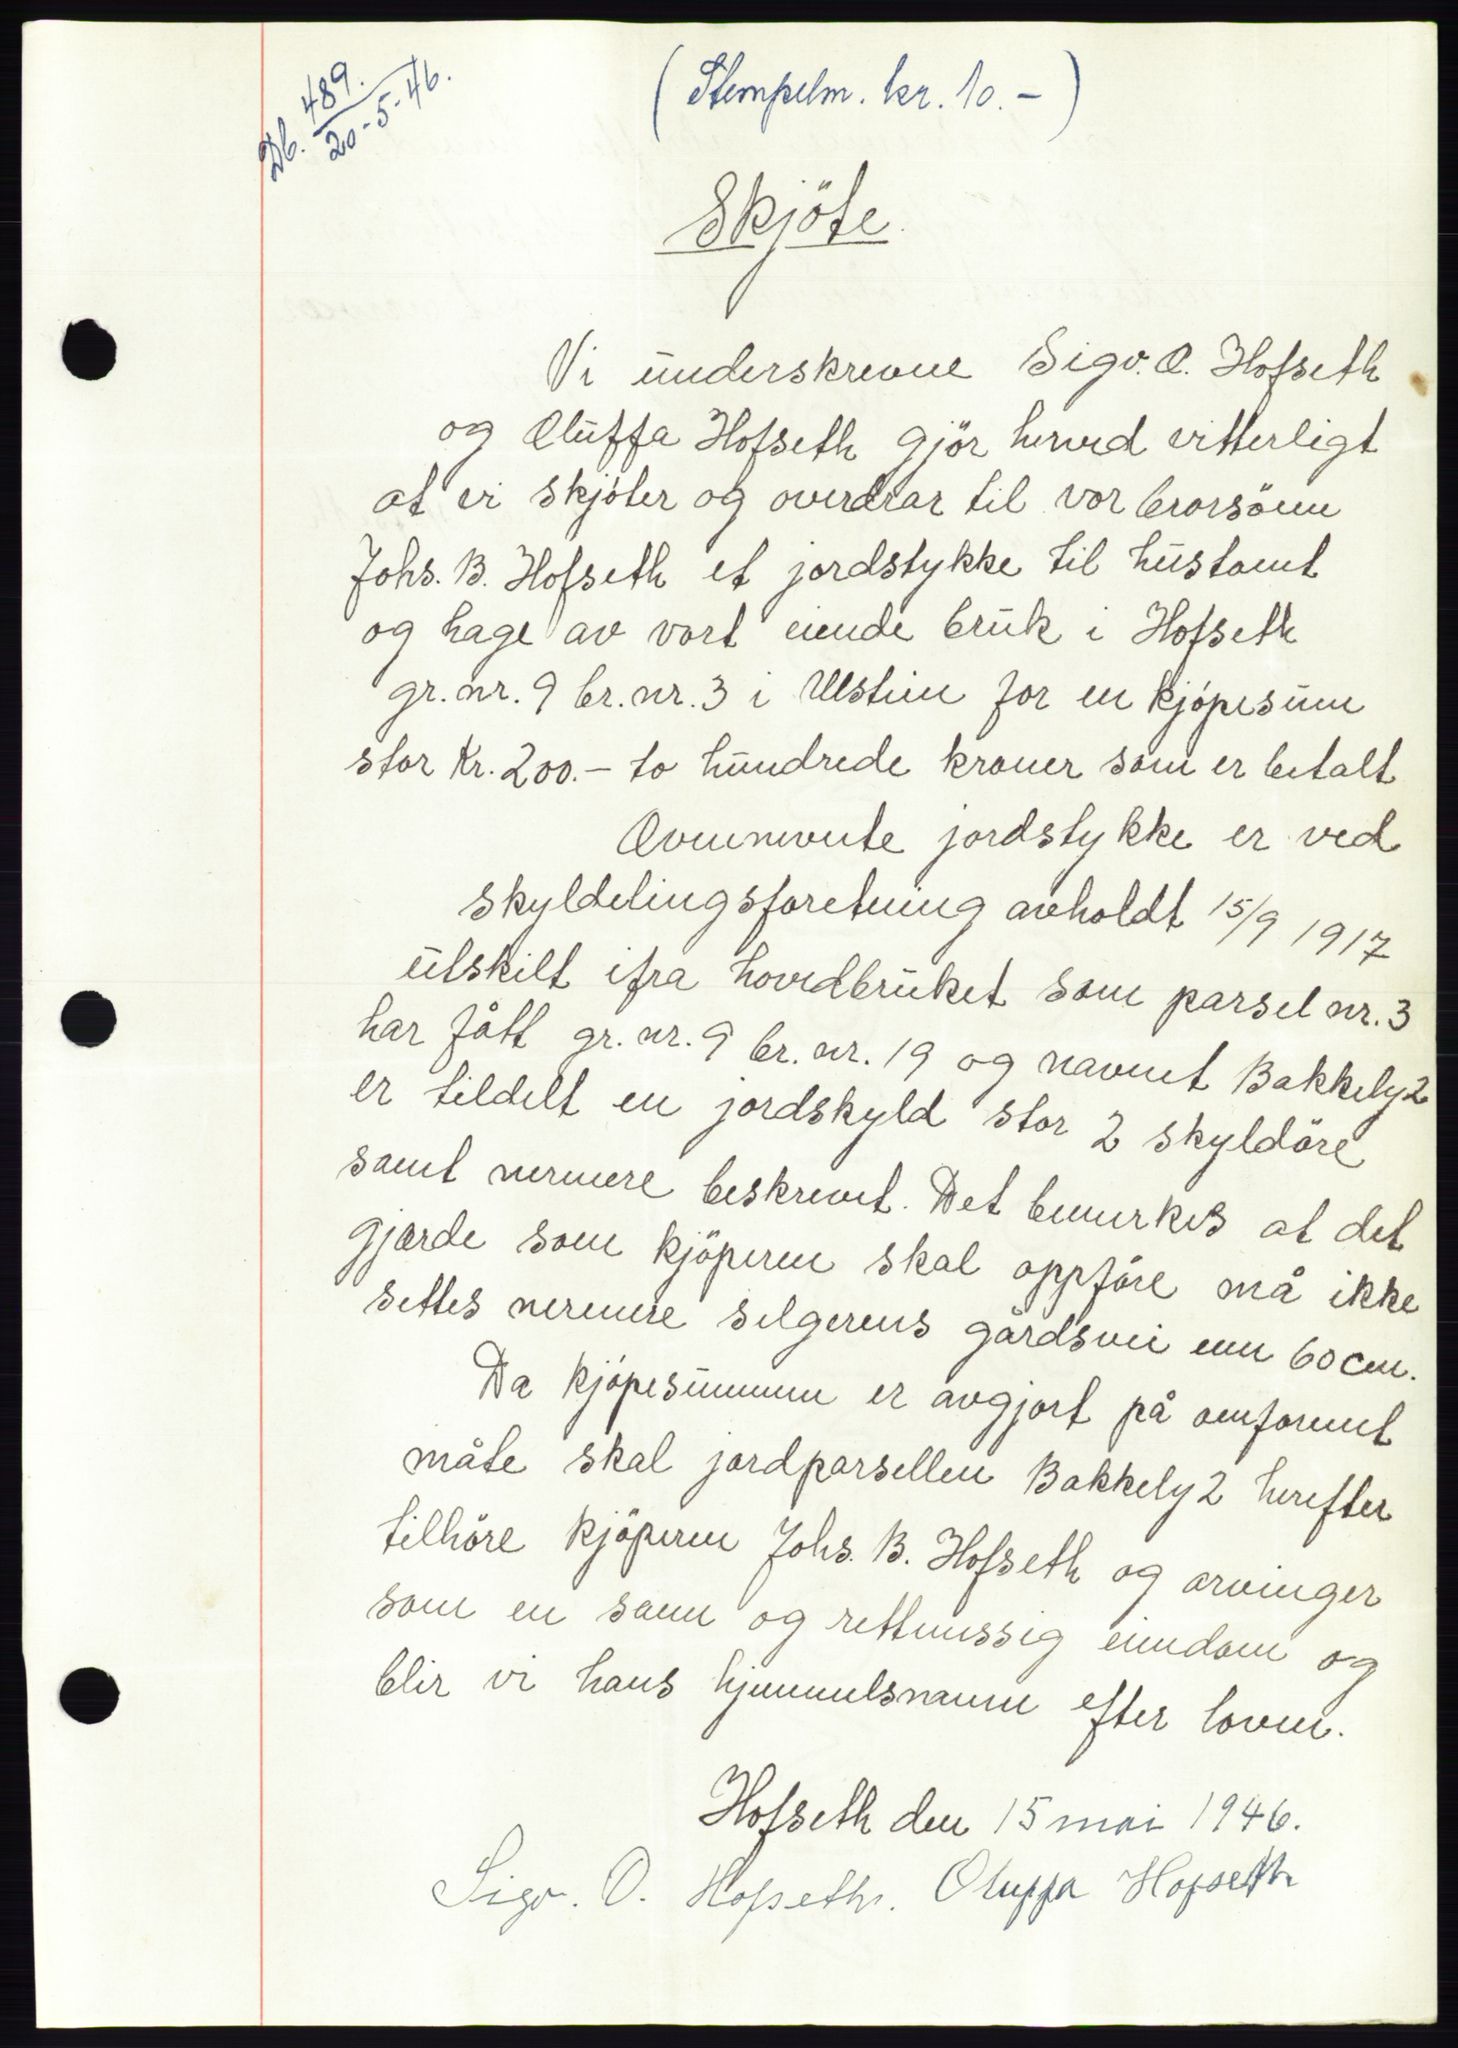 Db. 489.
20-5-46.
(Stempelm. kr. 10.-)
Skjöte.
Vi underskrevne Sigv. O. Hofseth
og Oluffa Hofseth gjör herved vitterligt
at vi skjöter og overdrar til vor brorsönn
Johs. B. Hofseth et jordstykke til hustomt
og hage av vort eiende bruk i Hofseth
gr. nr. 9 br. nr. 3 i Ulstein for en kjöpesum
stor Kr. 200.- to hundrede kroner som er betalt
Ovennevnte jordstykke er ved
skyldelingsforetning avholdt 15/9 1917
utskilt ifra hovedbruket som parsel nr. 3
har fått gr. nr. 9 br. nr. 19 og navnet Bakkely 2
er tildelt en jordskyld stor 2 skyldöre
samt nermere beskrevet. Det bemerkes at det
gjærde som kjöperen skal oppföre må ikke
settes nermere selgerens gårdsvei enn 60 cm.
Da kjöpesummen er avgjort på omforenet
måte skal jordparsellen Bakkely 2 herefter
tilhöre kjöperen Johs. B. Hofseth og arvinger
som en sann og rettmessig eiendom og
blir vi hans hjemmelsmenn efter loven.
Hofseth den 15 mai 1946.
Sigv. O. Hofseth. Oluffa Hofseth